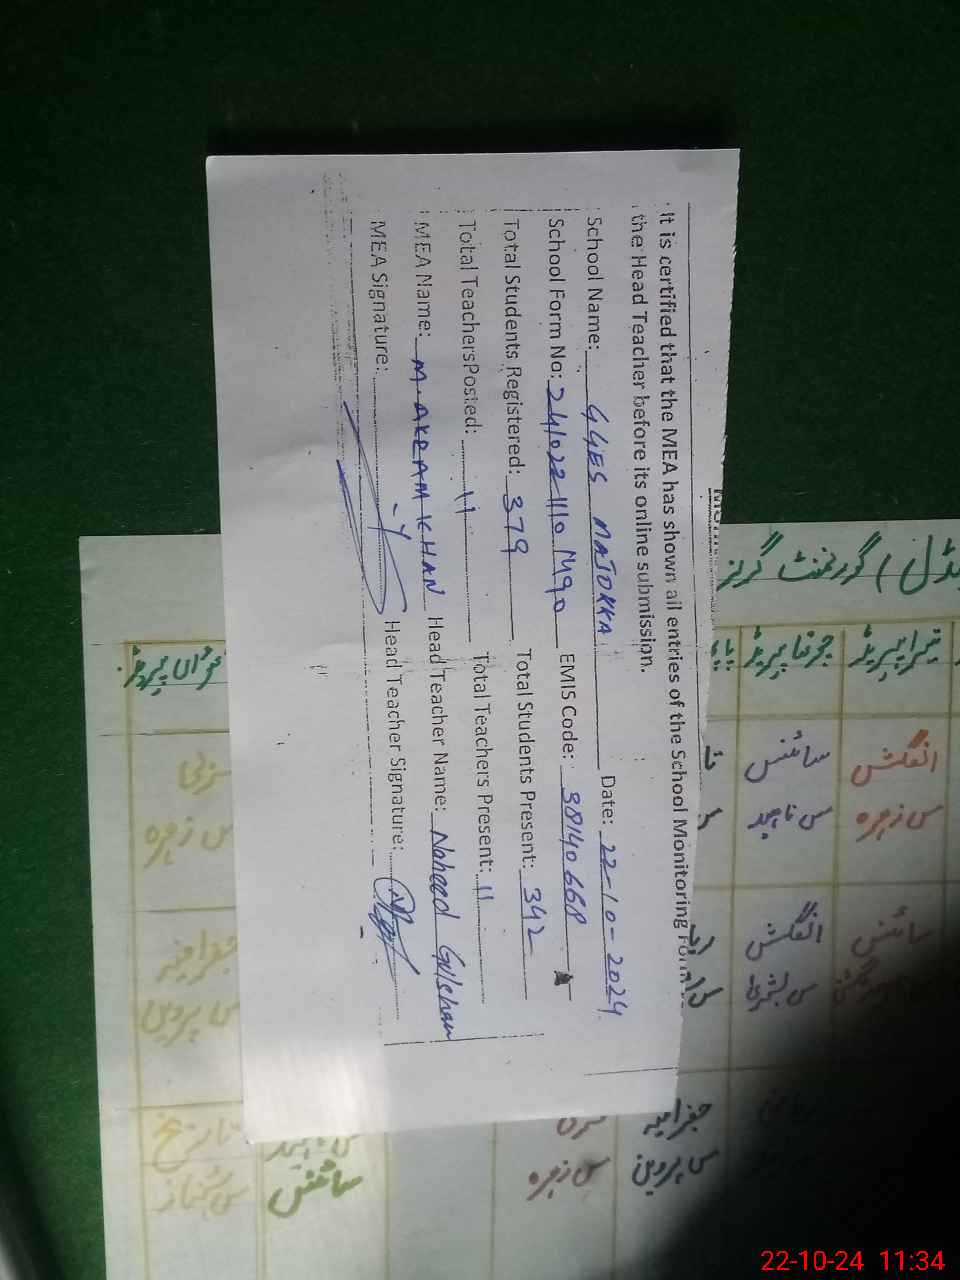 It is certified that the MEA has shown all entries of the School Monitoring Form
the Head Teacher before its online submission.
School Name: GGES MAJOKKA Date: 22-10-2024
School Form No: 24102211101490 EMIS Code: 38140668
Total Students Registered: 379 Total Students Present: 342
Total TeachersPosted: 11 Total Teachers Present: 11
MEA Name: M. AKRAM KHAN Head Teacher Name: Naheed Gulshan
MEA Signature: Head Teacher Signature:
گورنمنٹ گرلز
تیسرا پیریڈ
چوتھا پیریڈ
انگلش
س زہرہ
سائنس
س ناہید
سائنس
انگلش
س بشریٰ
جغرافیہ
س پروین
س زہرہ
سائنس
س زہرہ
جغرافیہ
س پروین
تاریخ
س شہناز
22-10-24 11:34